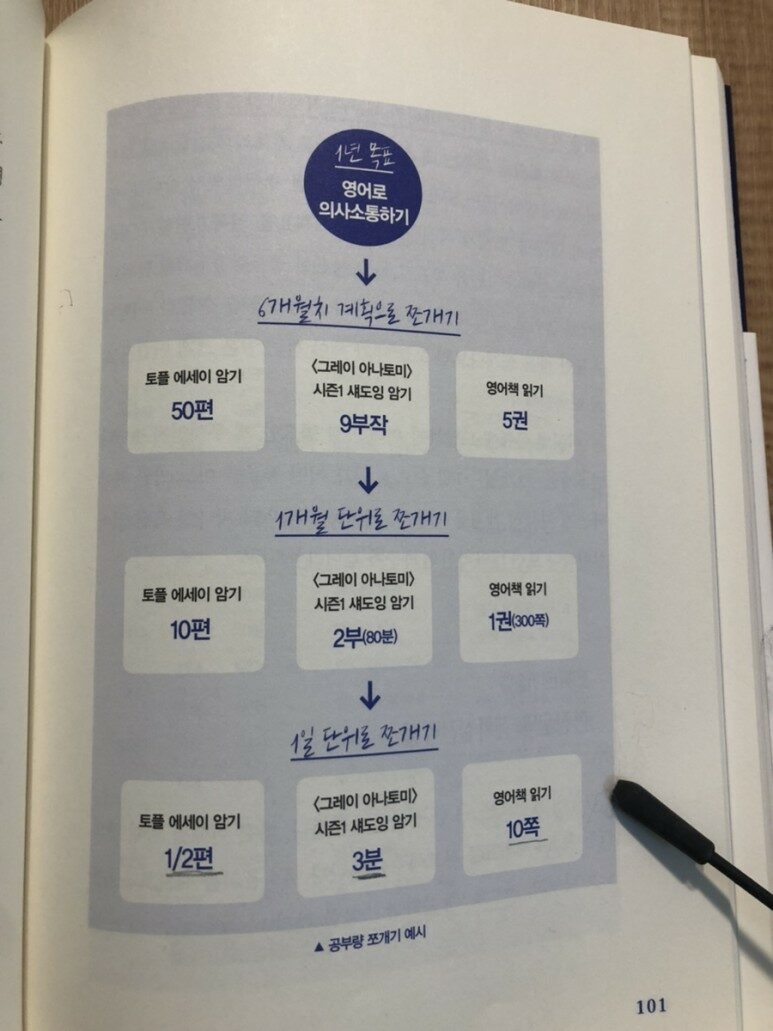 1년 목표
영어로
의사소통하기
6개월치 계획으로 쪼개기
토플 에세이 암기
50편
〈그레이 아나토미〉
시즌1 섀도잉 암기
9부작
영어책 읽기
5권
1개월 단위로 쪼개기
토플 에세이 암기
10편
〈그레이 아나토미〉
시즌1 섀도잉 암기
2부(80분)
영어책 읽기
1권(300쪽)
1일 단위로 쪼개기
토플 에세이 암기
1/2편
〈그레이 아나토미〉
시즌1 섀도잉 암기
3분
영어책 읽기
10쪽
▲ 공부량 쪼개기 예시
101